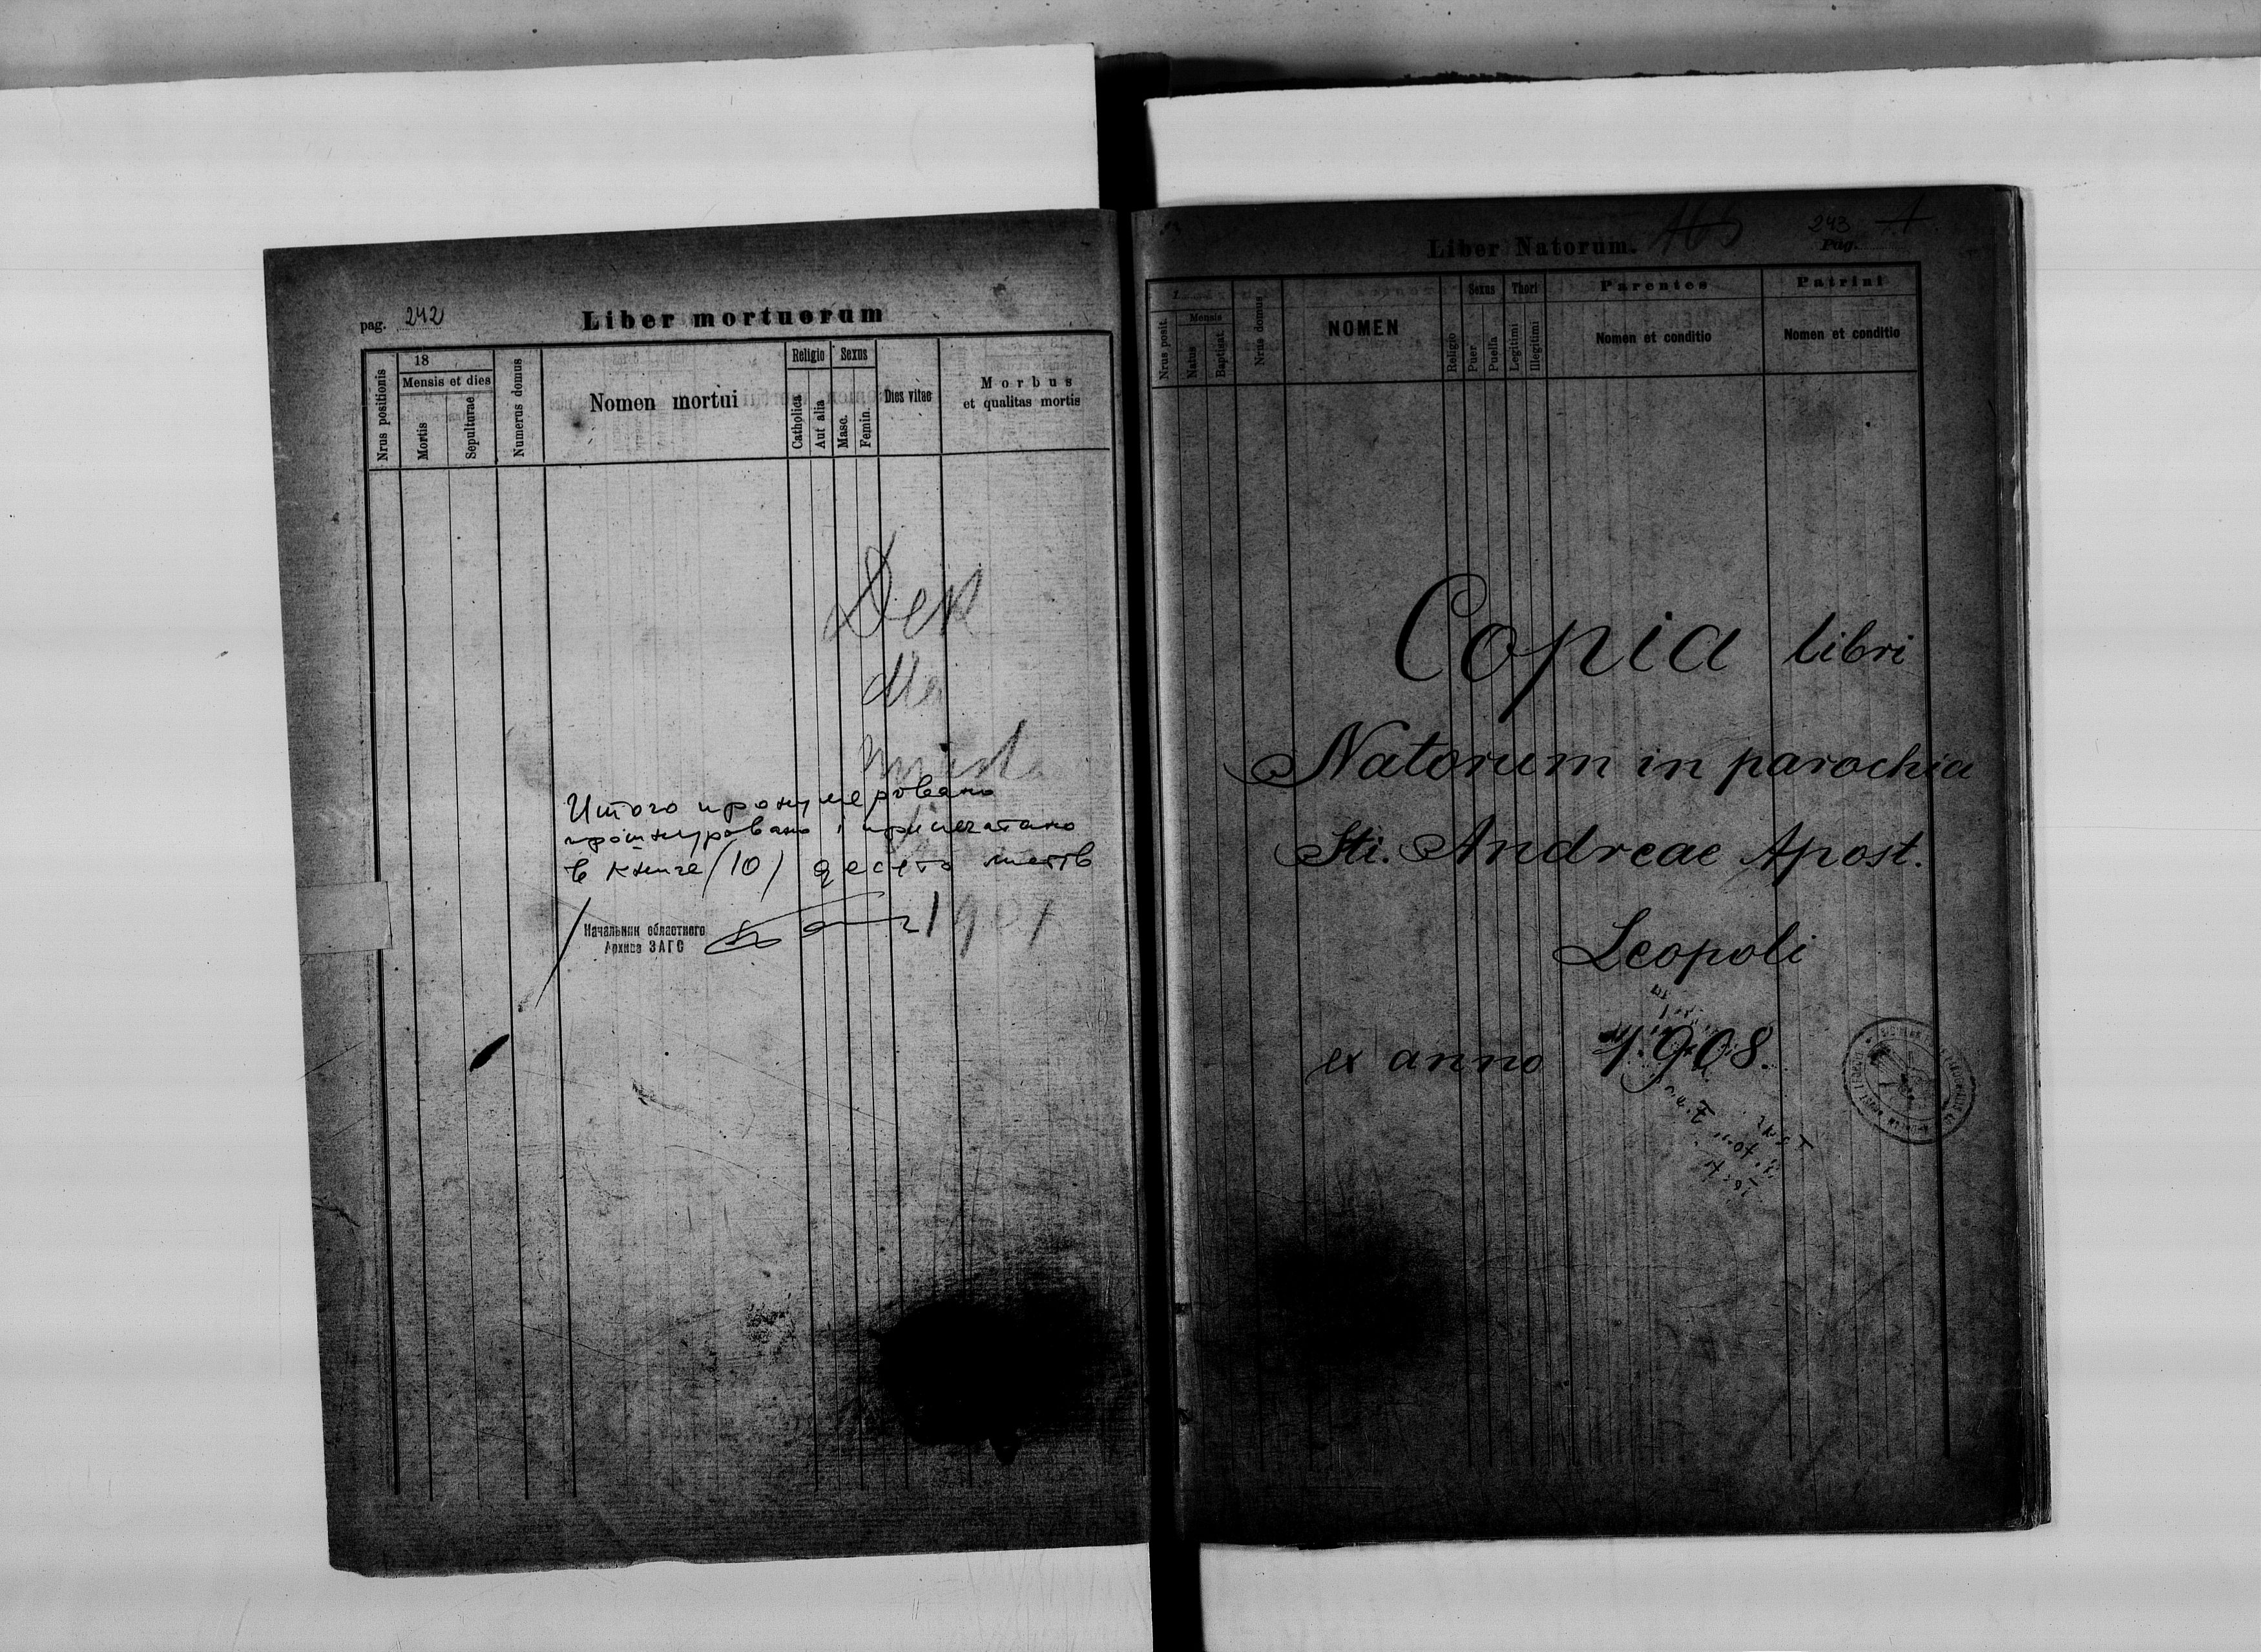 pag. 242
Liber mortuorum
Nrus positionis
18
Mensis et dies
Mortis
Sepulturae
Numerus domus
Nomen mortui
Religio
Catholica
Aut alia
Sexus
Masc.
Femin.
Dies vitae
Morbus
et qualitas mortis
Итого пронумеровано
прошнуровано и припечатано
в книге (10) десять листв
Начальник областного
Архива ЗАГС
1907
Liber Natorum.
243
Pag.
Nrus posit.
Mensis
Natus
Baptisat.
Nrus domus
NOMEN
Religio
Sexus
Puer
Puella
Thori
Legitimi
Illegitimi
Parentes
Nomen et conditio
Patrini
Nomen et conditio
Copia libri
Natorum in parochia
Sti. Andreae Apost.
Leopoli
ex anno 1908.